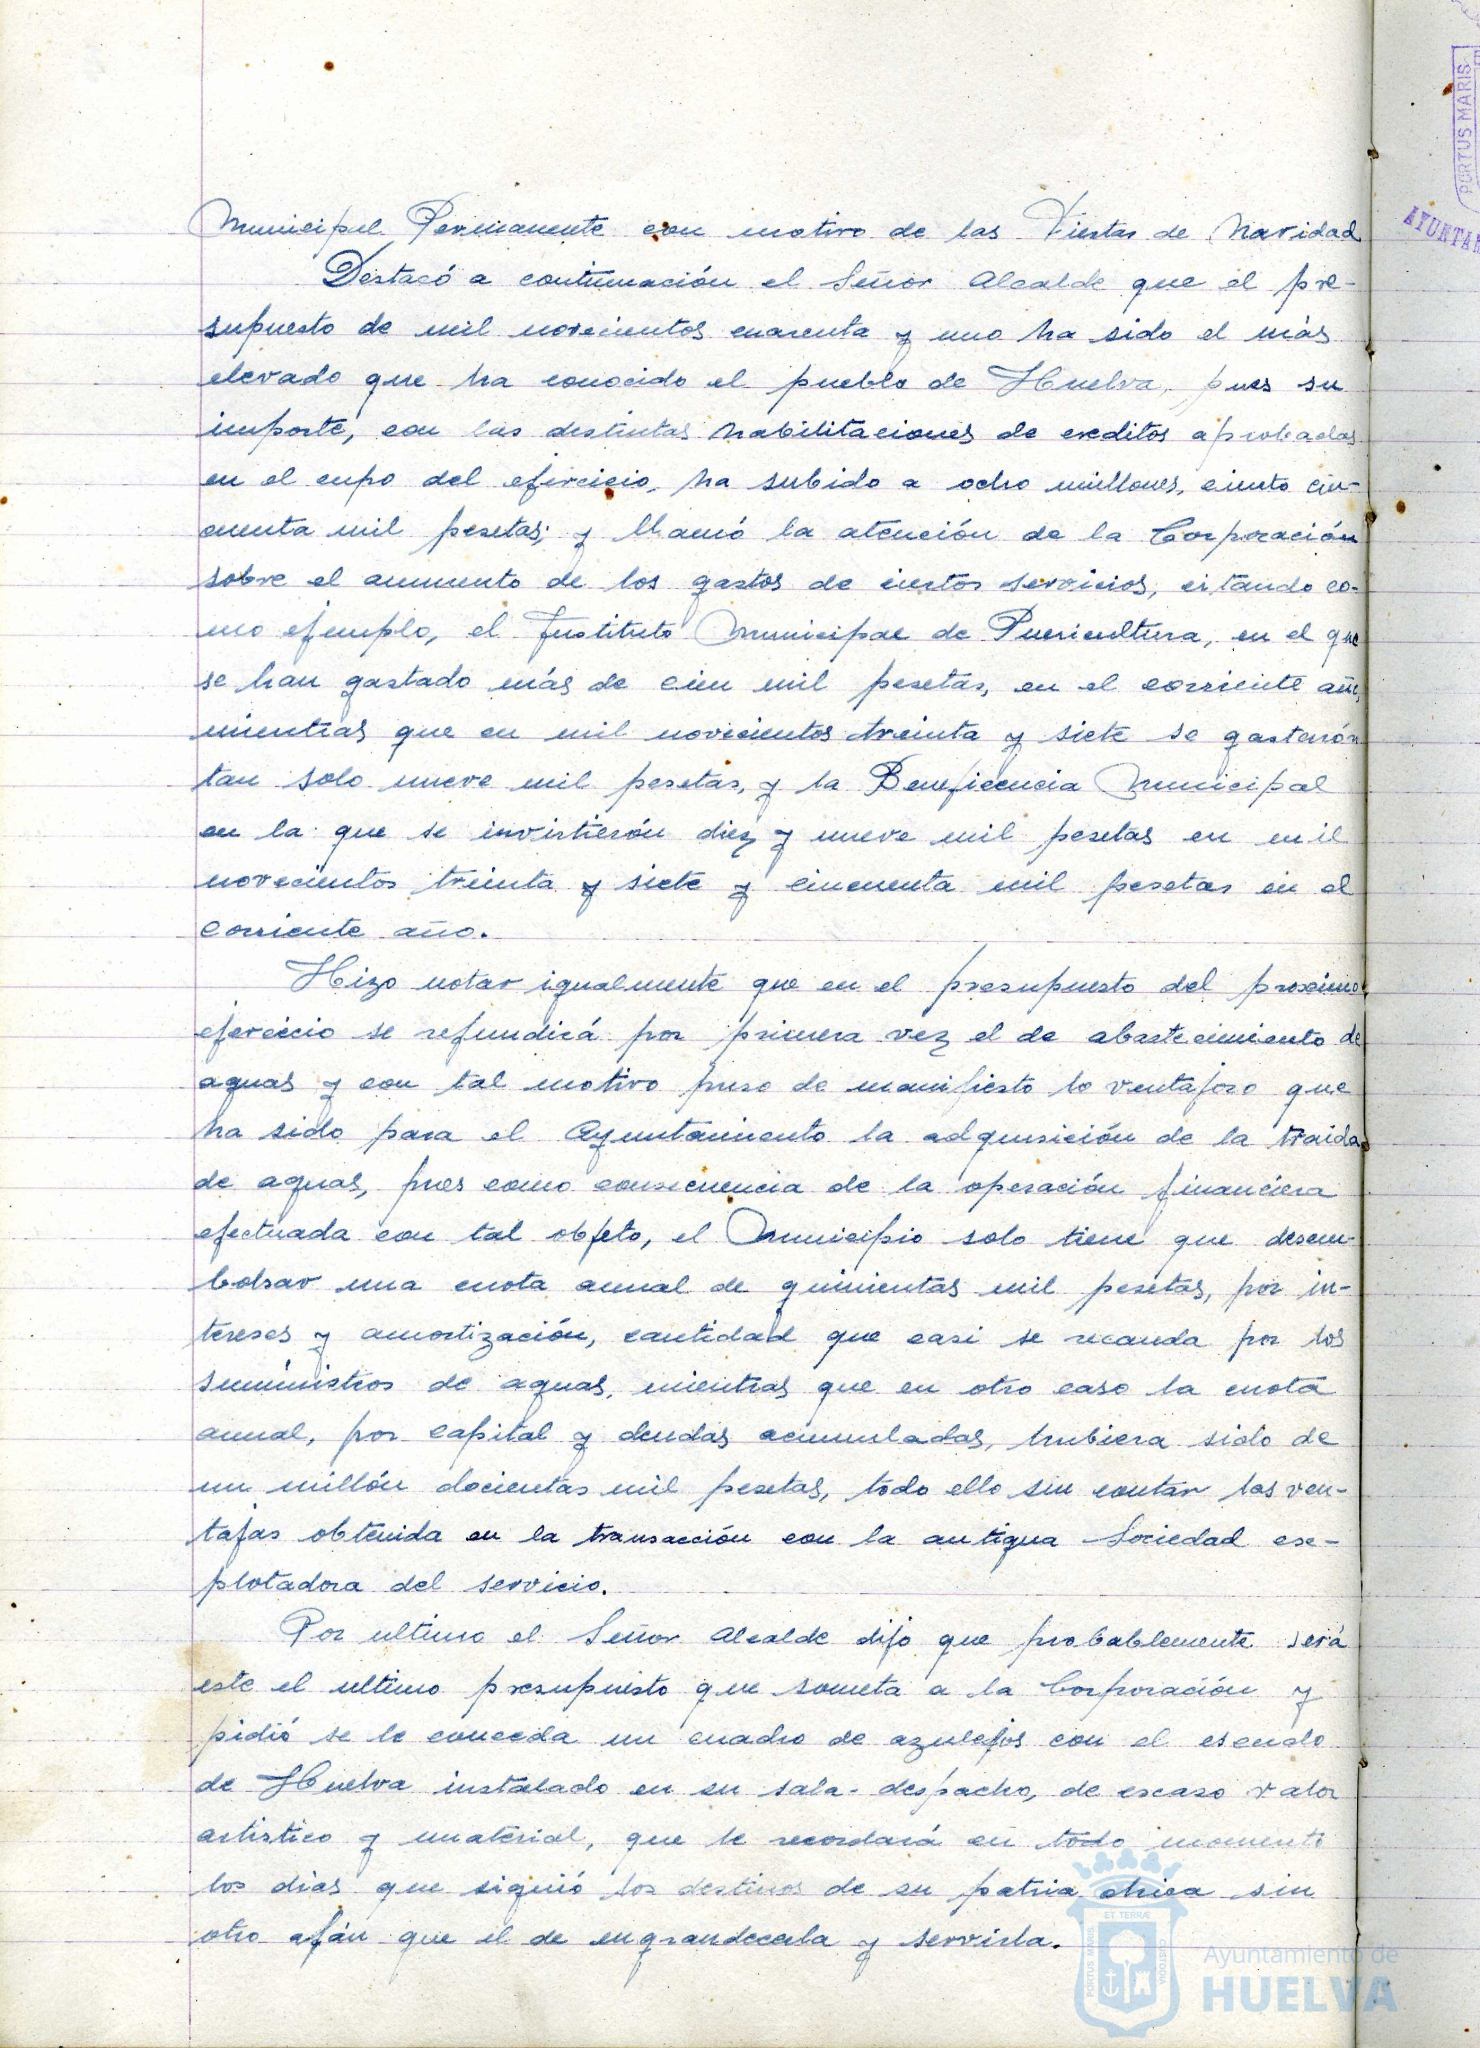 Municipal Permanente con motivo de las Fiestas de Navidad
Destacó a continuación el Señor Alcalde que el pre-
supuesto de mil novecientos cuarenta y uno ha sido el más
elevado que ha conocido el pueblo de Huelva, pues su
importe, con las distintas habilitaciones de creditos aprobadas
en el curso del ejercicio, ha subido a ocho millones, ciento cin-
cuenta mil pesetas; y llamó la atención de la Corporación
sobre el aumento de los gastos de ciertos servicios, citando co-
mo ejemplo, el Instituto Municipal de Puericultura, en el que
se han gastado más de cien mil pesetas, en el corriente año,
mientras que en mil novecientos treinta y siete se gastarón
tan solo nueve mil pesetas, y la Beneficencia Municipal
en la que se invirtierón diez y nueve mil pesetas en mil
novecientos treinta y siete y cincuenta mil pesetas en el
corriente año.
Hizo notar igualmente que en el presupuesto del proximo
ejercicio se refundirá por primera vez el de abastecimiento de
aguas y con tal motivo puso de manifiesto lo ventajoso que
ha sido para el Ayuntamiento la adquisición de la traida
de aguas, pues como consecuencia de la operación financiera
efectuada con tal objeto, el Municipio solo tiene que desem-
bolsar una cuota anual de quinientas mil pesetas, por in-
tereses y amortización, cantidad que casi se recauda por los
suministros de aguas, mientras que en otro caso la cuota
anual, por capital y deudas acumuladas, hubiera sido de
un millón docientas mil pesetas, todo ello sin contar las ven-
tajas obtenida en la transacción con la antigua Sociedad ex-
plotadora del servicio.
Por ultimo el Señor Alcalde dijo que probablemente será
este el ultimo presupuesto que someta a la Corporación y
pidió se le conceda un cuadro de azulejos con el escudo
de Huelva instalado en su sala-despacho, de escaso valor
artistico y material, que le recordará en todo momento
los dias que siguió los destinos de su patria chica sin
otro afán que el de engrandecerla y servirla.
PORTUS MARIS
AYUNTAM
PORTUS MARIS ET TERRÆ CUSTODIA
Ayuntamiento de
HUELVA